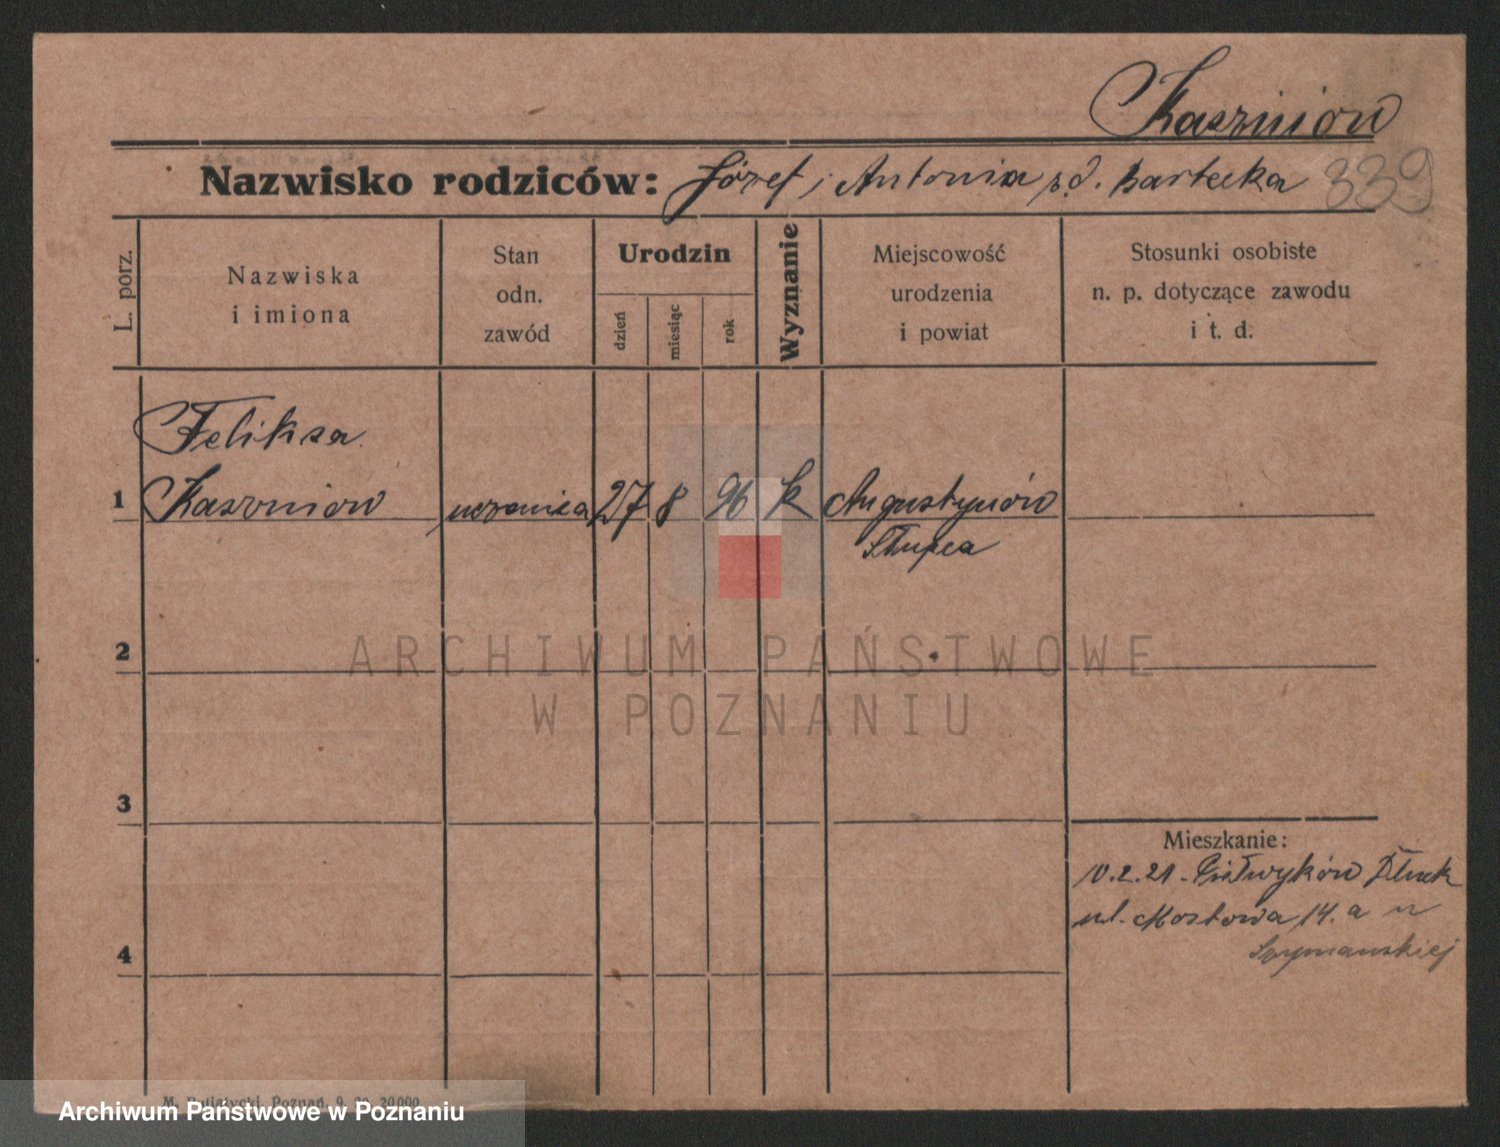 Kaszniow
Nazwisko rodziców: Józef i Antonina z d. Bartecka 339
L. porz.
Nazwiska
i imiona
Stan
odn.
zawód
Urodzin
dzień
miesiąc
rok
Wyznanie
Miejscowość
urodzenia
i powiat
Stosunki osobiste
n. p. dotyczące zawodu
i t. d.
Feliksa
1 Kaszniow uczenica 27 8 96 k Augustynów
Słupca
ARCHIWUM PAŃSTWOWE
W POZNANIU
2
3
4
Mieszkanie:
10.2.21.
ul. Mostowa 14. a u
Szymanskiej
Poznań, 9. 20. 20000.
Archiwum Państwowe w Poznaniu